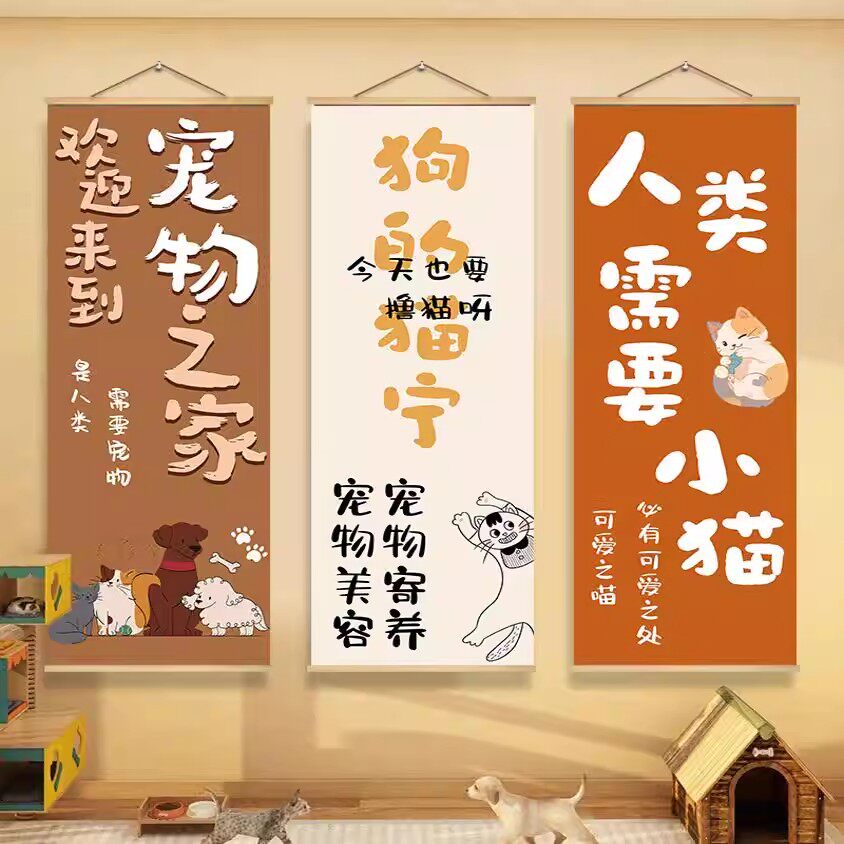 欢迎来到
宠物之家
是人类
需要宠物
狗的猫宁
今天也要
撸猫呀
宠物美容
宠物寄养
人类
需要
小猫
必有可爱之处
可爱之喵